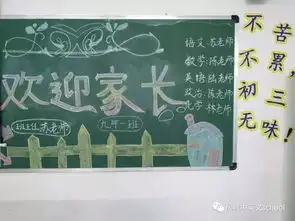 欢迎家长
班主任 苏老师
九年一班
语文：苏老师
数学：陈老师
英语：陆老师
政治：陈老师
化学：林老师
不苦不累，
初三无味！